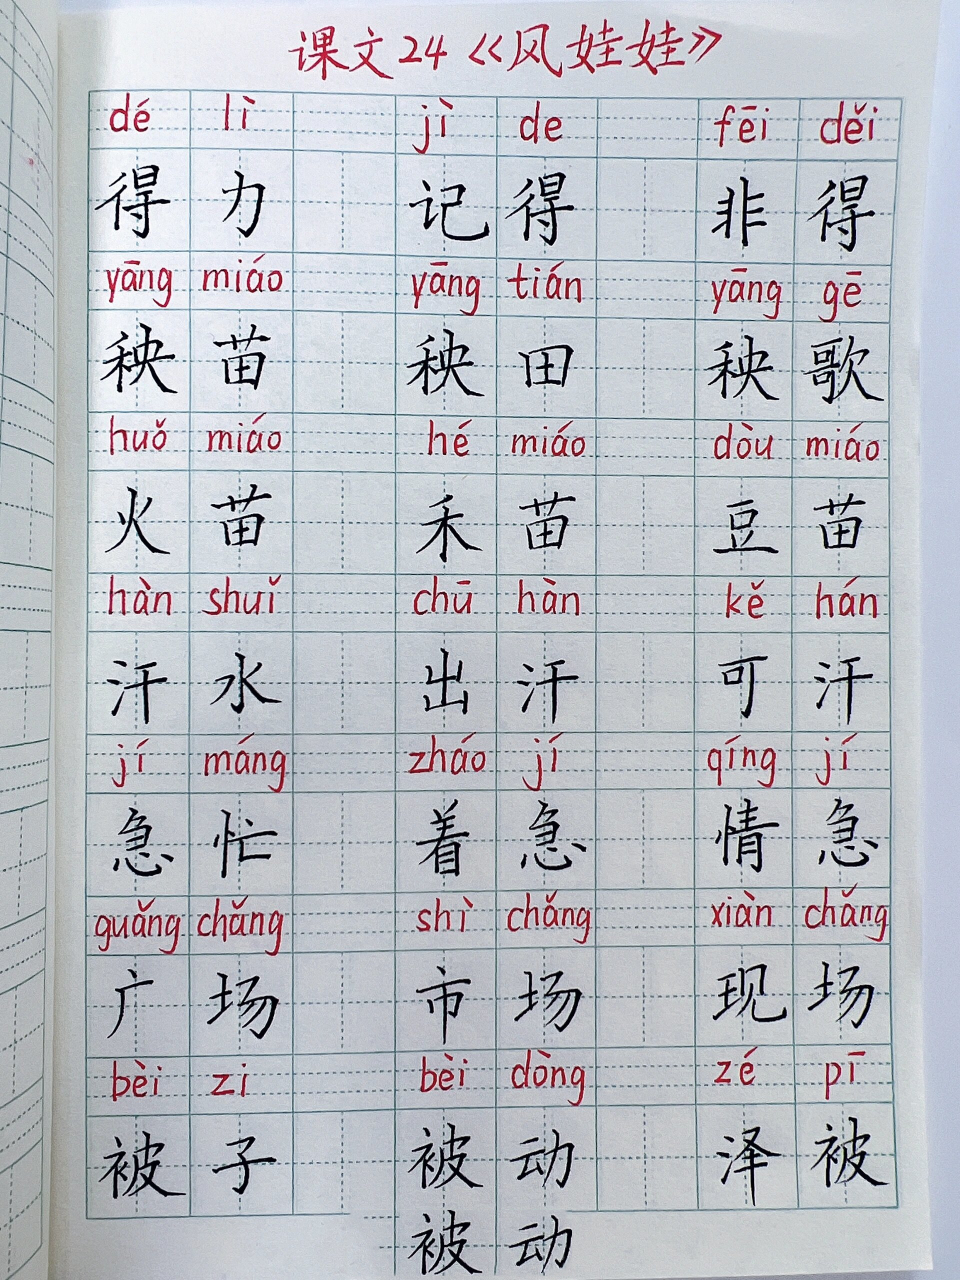 课文24《风娃娃》
dé lì jì de fēi děi
得力 记得 非得
yāng miáo yāng tián yāng gē
秧苗 秧田 秧歌
huǒ miáo hé miáo dòu miáo
火苗 禾苗 豆苗
hàn shuǐ chū hàn kě hán
汗水 出汗 可汗
jí máng zháo jí qíng jí
急忙 着急 情急
guǎng chǎng shì chǎng xiàn chǎng
广场 市场 现场
bèi zi bèi dòng zé pī
被子 被动 泽被
被动